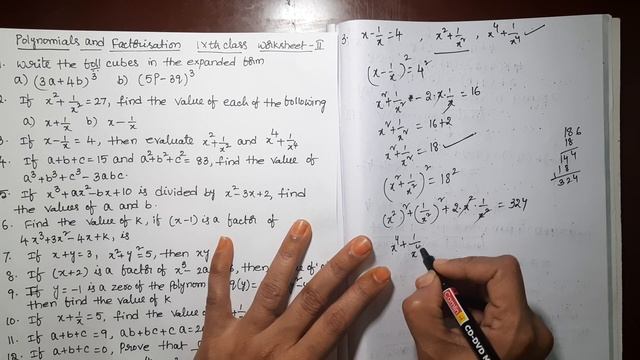 Polynomials and Factorisation IXth class Worksheet-II
1. Write the foll cubes in the expanded form
a) (3a+4b)³ b) (5p-3q)³
2. If x²+1/x²=27, find the value of each of the following
a) x+1/x b) x-1/x
3. If x-1/x=4, then evaluate x²+1/x² and x⁴+1/x⁴
4. If a+b+c=15 and a²+b²+c²=83, find the value of
a³+b³+c³-3abc.
5. If x³+ax²-bx+10 is divided by x²-3x+2, find
the values of a and b.
6. Find the value of k, if (x-1) is a factor of
4x³+3x²-4x+k, is
7. If x+y=3, x²+y²=5, then xy
8. If (x+2) is a factor of x⁵-, then
9. If y=-1 is a zero of the Polynom
then find the value of k
10. If x+1/x=5, find the value of
11. If a+b+c=9, ab+bc+ca=2
12. If a+b+c=0, prove that
3. x-1/x=4, x²+1/x², x⁴+1/x⁴ ✓
(x-1/x)²=4²
x²+1/x²-2·x·1/x=16
x²+1/x²=16+2
x²+1/x²=18 ✓
(x²+1/x²)²=18²
(x²)²+(1/x²)²+2·x²·1/x²=324
x⁴+1/x⁴
186
18
144
18
324
CD-DVD